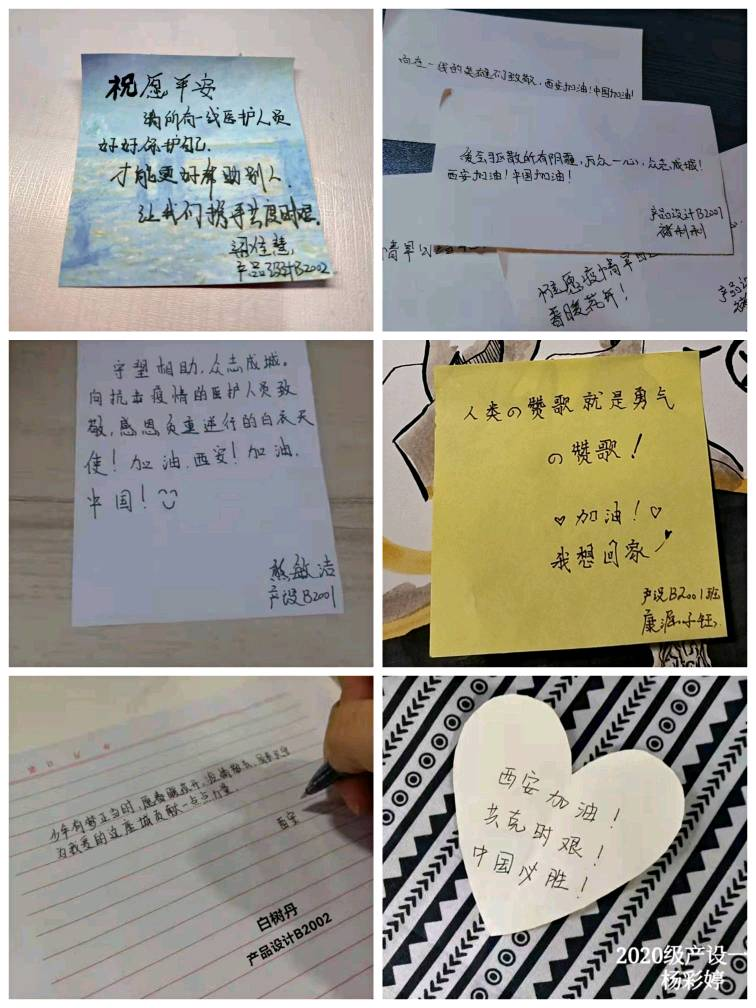 祝愿平安
满所有一线医护人员
好好保护自己.
才能更好帮助别人.
让我们携手共度时艰.
梁佳慧.
产品设计B2002.
向在一线的英雄们致敬,西安加油!中国加油!
爱会驱散所有阴霾,万众一心,众志成城!
西安加油!中国加油!
产品设计B2001
褚利利
情早
祝愿疫情早日
春暖花开!
产品设
守望相助,众志成城。
向抗击疫情的医护人员致
敬,感恩负重逆行的白衣天
使!加油,西安!加油,
中国!
熊敏洁
产设B2001
人类の赞歌就是勇气
の赞歌!
加油!
我想回家
产设B2001班
康涵子钰
少年有梦正当时,愿春暖花开,疫情散去,
为我爱的这座城贡献一点点力量.
西安
白树丹
产品设计B2002
西安加油!
共克时艰!
中国必胜!
2020级产设一
杨彩婷